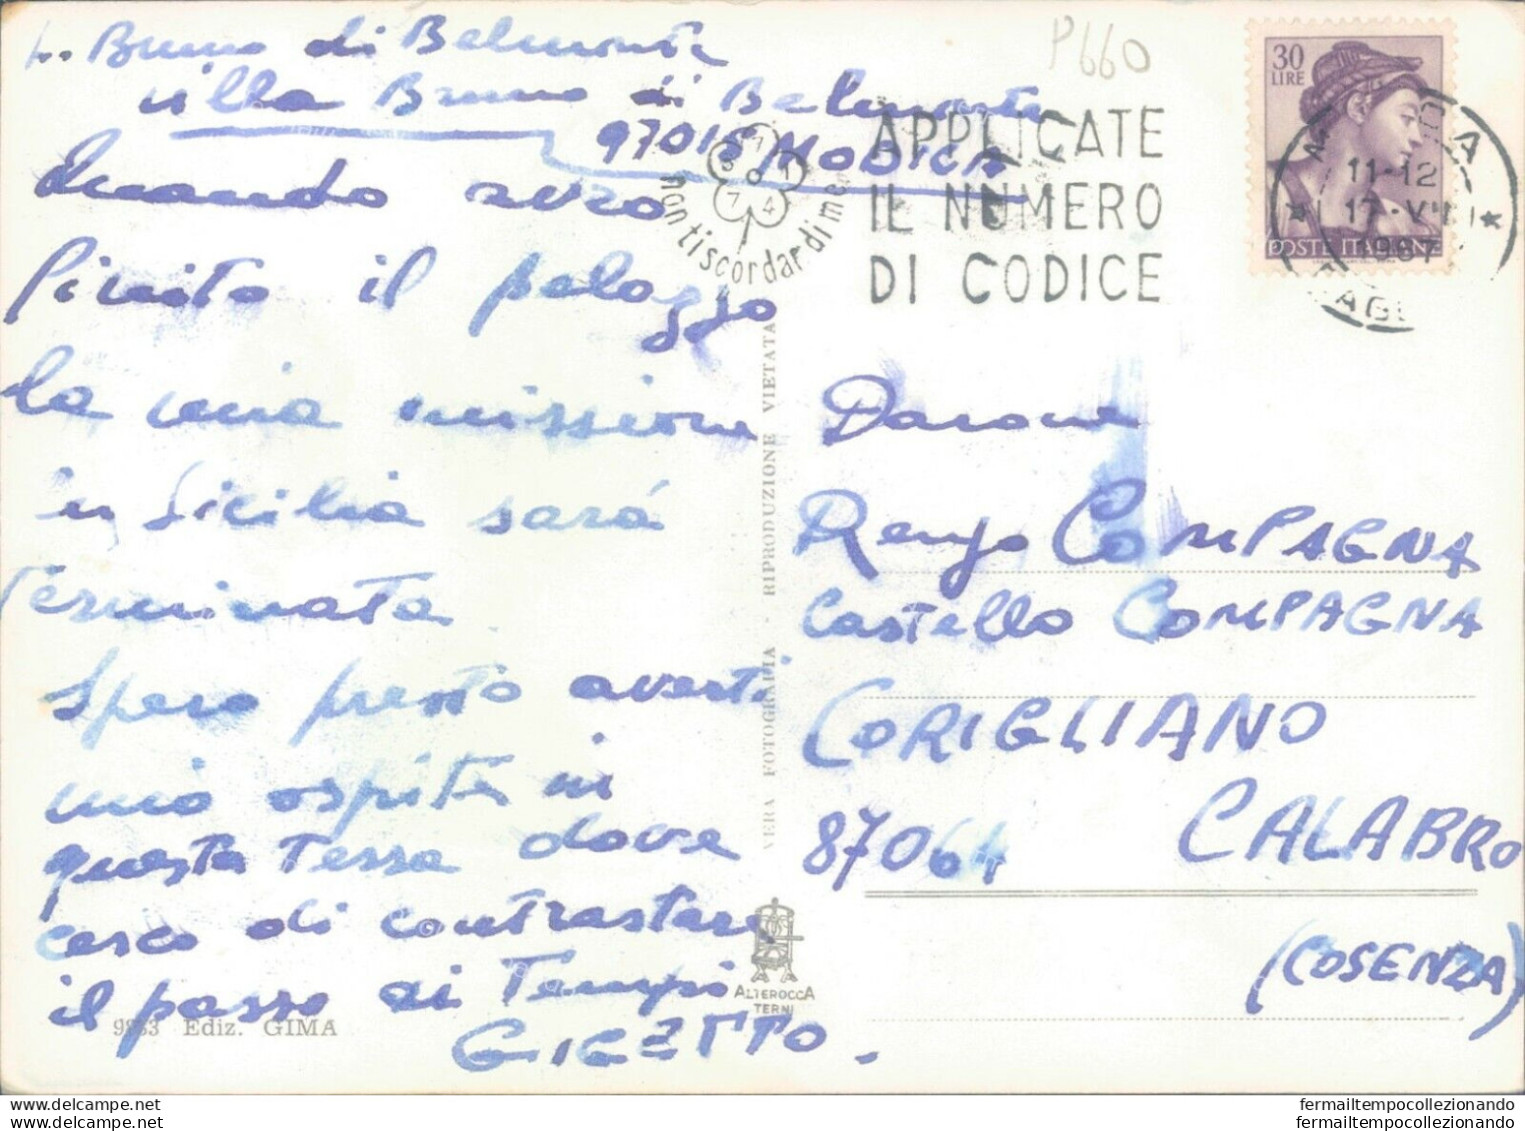 Bruno di Belmonte
villa Bruno di Belmonte
97015 MODICA
Quando avrò
finito il palazzo
la mia missione
in Sicilia sará
terminata
Spero presto averti
mio ospite in
questa terra dove
cerco di contrastare
il passo ai Tempi
GIGETTO.
9883 Ediz. GIMA
P660
non ti scordar di me
APPLICATE
IL NUMERO
DI CODICE
30
LIRE
POSTE ITALIANE
11-12
17-VII
1967
VERA FOTOGRAFIA - RIPRODUZIONE VIETATA
ALTEROCCA
TERNI
Barone
Renzo COMPAGNA
Castello COMPAGNA
CORIGLIANO
87064 CALABRO
(COSENZA)
fermailtempocollezionando.com
fermailtempocollezionando.com
fermailtempocollezionando
fermailtempocollezionando